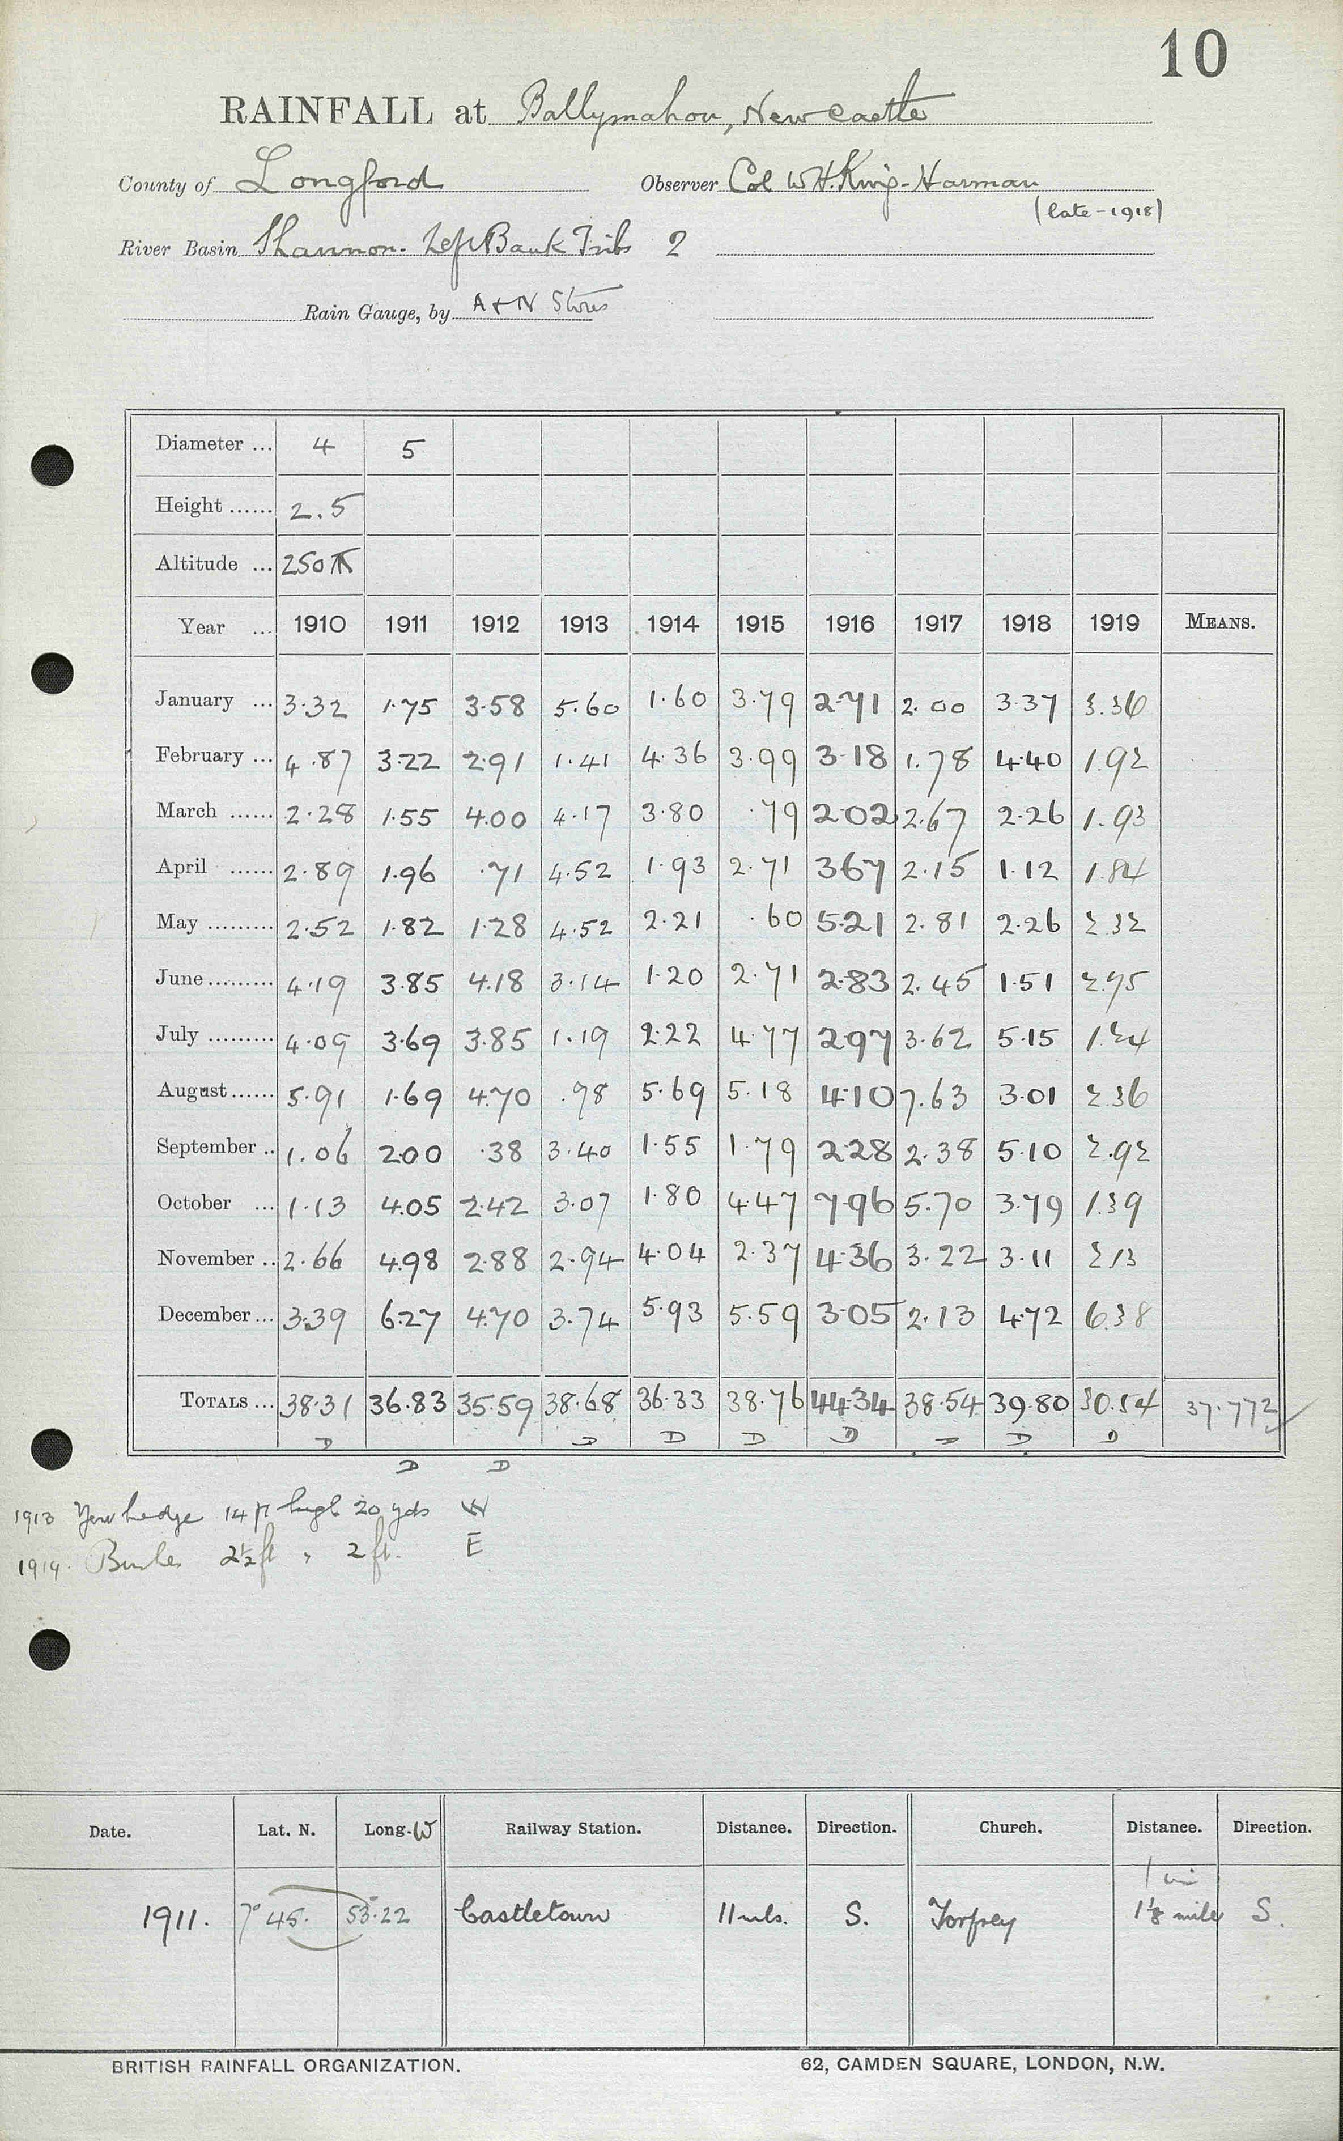 10
RAINFALL at Ballymahon, Newcastle
County of Longford Observer Col W H. King-Harman
(late - 1918)
River Basin Shannon. Left Bank Tribs 2
Rain Gauge, by A & N Stores
Diameter ... 4 5
Height ...... 2.5
Altitude ... 250 ft
Year ... 1910 1911 1912 1913 1914 1915 1916 1917 1918 1919 MEANS.
January ... 3.32 1.75 3.58 5.60 1.60 3.79 2.71 2.00 3.37 3.36
February ... 4.87 3.22 2.91 1.41 4.36 3.99 3.18 1.78 4.40 1.92
March ...... 2.28 1.55 4.00 4.17 3.80 .79 2.02 2.67 2.26 1.93
April ...... 2.89 1.96 .71 4.52 1.93 2.71 3.67 2.15 1.12 1.84
May ......... 2.52 1.82 1.28 4.52 2.21 .60 5.21 2.81 2.26 2.32
June ......... 4.19 3.85 4.18 3.14 1.20 2.71 2.83 2.45 1.51 2.75
July ......... 4.09 3.69 3.85 1.19 2.22 4.77 2.97 3.62 5.15 1.24
August ...... 5.91 1.69 4.70 .98 5.69 5.18 4.10 7.63 3.01 2.36
September .. 1.06 2.00 .38 3.40 1.55 1.79 2.28 2.38 5.10 2.92
October ... 1.13 4.05 2.42 3.07 1.80 4.47 7.96 5.70 3.79 1.39
November .. 2.66 4.98 2.88 2.94 4.04 2.37 4.36 3.22 3.11 2.13
December ... 3.39 6.27 4.70 3.74 5.93 5.59 3.05 2.13 4.72 6.38
TOTALS ... 38.31 36.83 35.59 38.68 36.33 38.76 44.34 38.54 39.80 30.54 37.772
D D D D D D D D
D D
1913 Yew hedge 14 ft high 20 yds W
1914. 2½ ft " 2 ft. E
Date. Lat. N. Long. W Railway Station. Distance. Direction. Church. Distance. Direction.
1 mi
1911. 7° 45. 53° 22 Castletown 11 mls. S. Forgney 1⅛ mile S.
BRITISH RAINFALL ORGANIZATION. 62, CAMDEN SQUARE, LONDON, N.W.